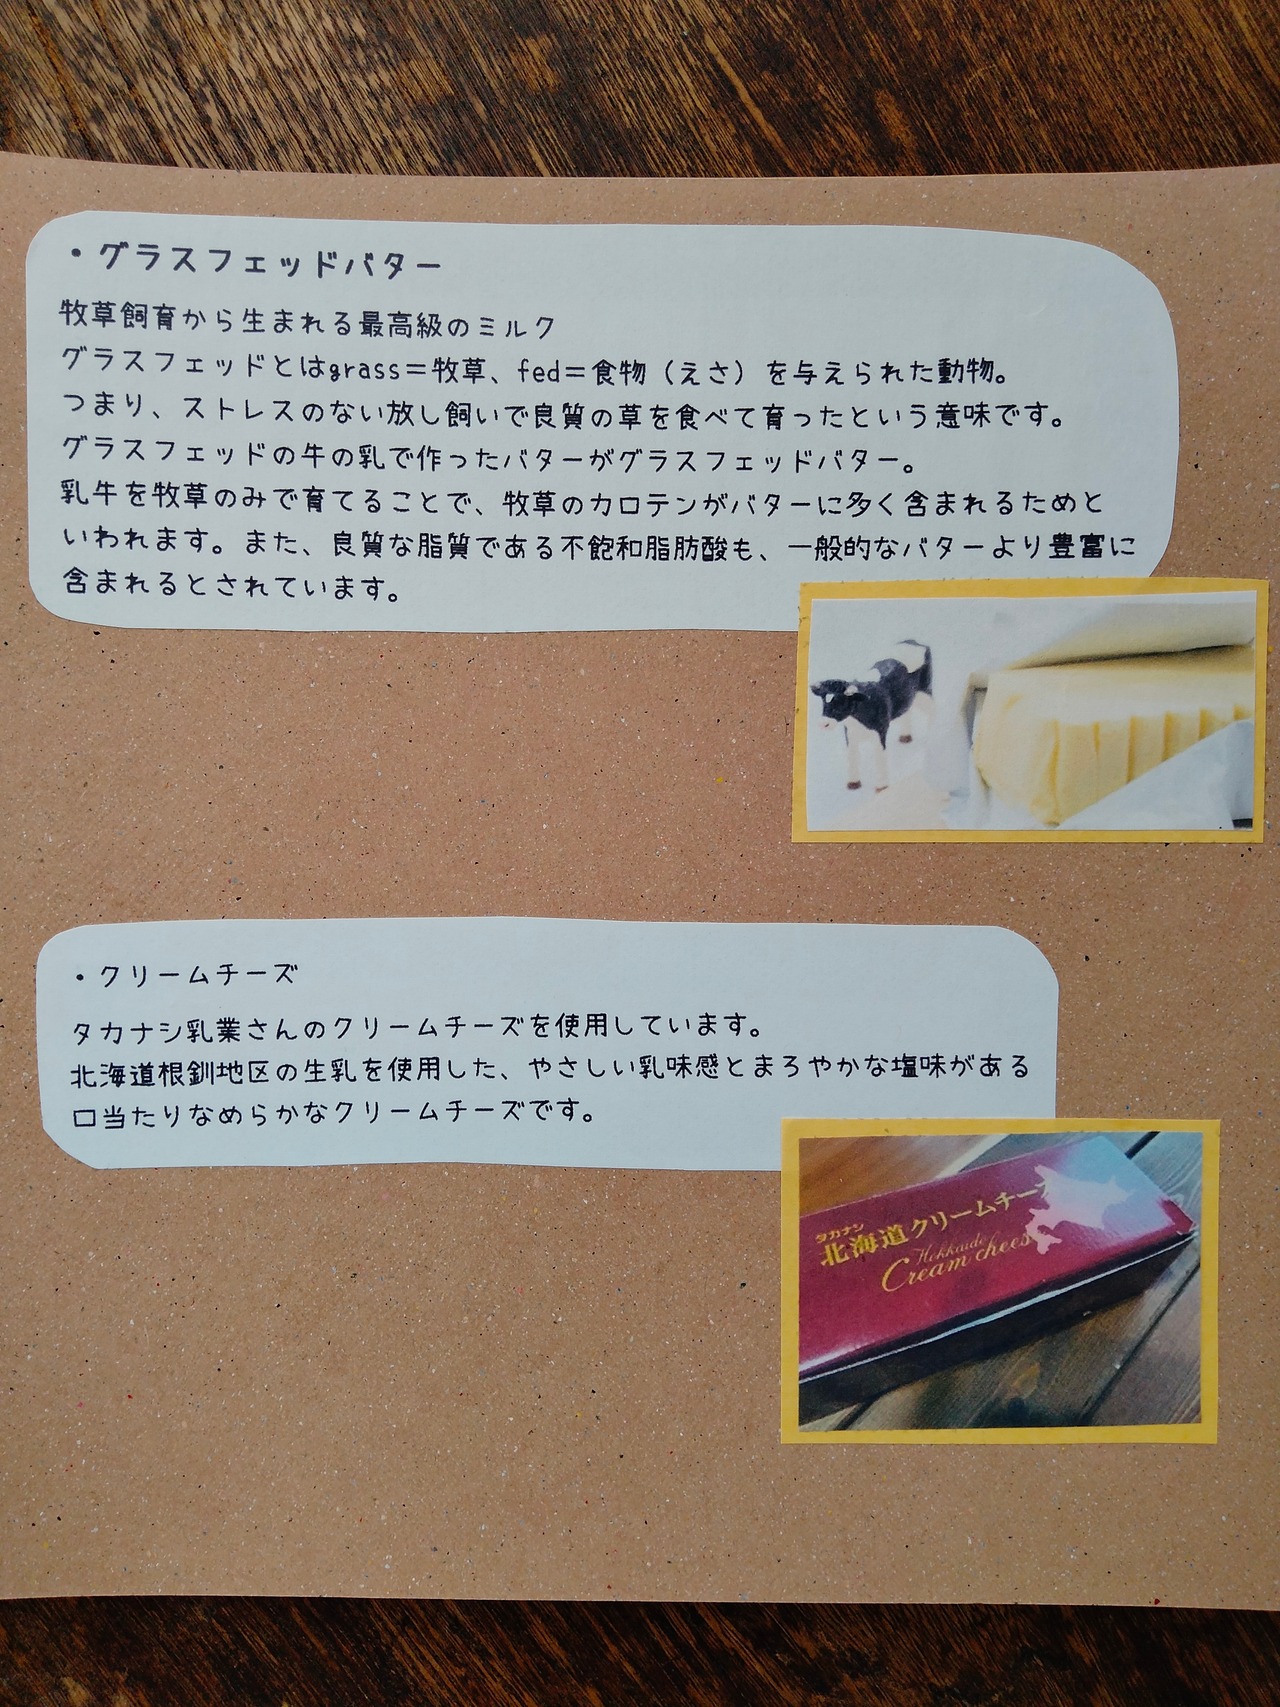 ・グラスフェッドバター
牧草飼育から生まれる最高級のミルク
グラスフェッドとはgrass＝牧草、fed＝食物（えさ）を与えられた動物。
つまり、ストレスのない放し飼いで良質の草を食べて育ったという意味です。
グラスフェッドの牛の乳で作ったバターがグラスフェッドバター。
乳牛を牧草のみで育てることで、牧草のカロテンがバターに多く含まれるためと
いわれます。また、良質な脂質である不飽和脂肪酸も、一般的なバターより豊富に
含まれるとされています。
・クリームチーズ
タカナシ乳業さんのクリームチーズを使用しています。
北海道根釧地区の生乳を使用した、やさしい乳味感とまろやかな塩味がある
口当たりなめらかなクリームチーズです。
タカナシ
北海道クリームチーズ
Hokkaido
Cream cheese